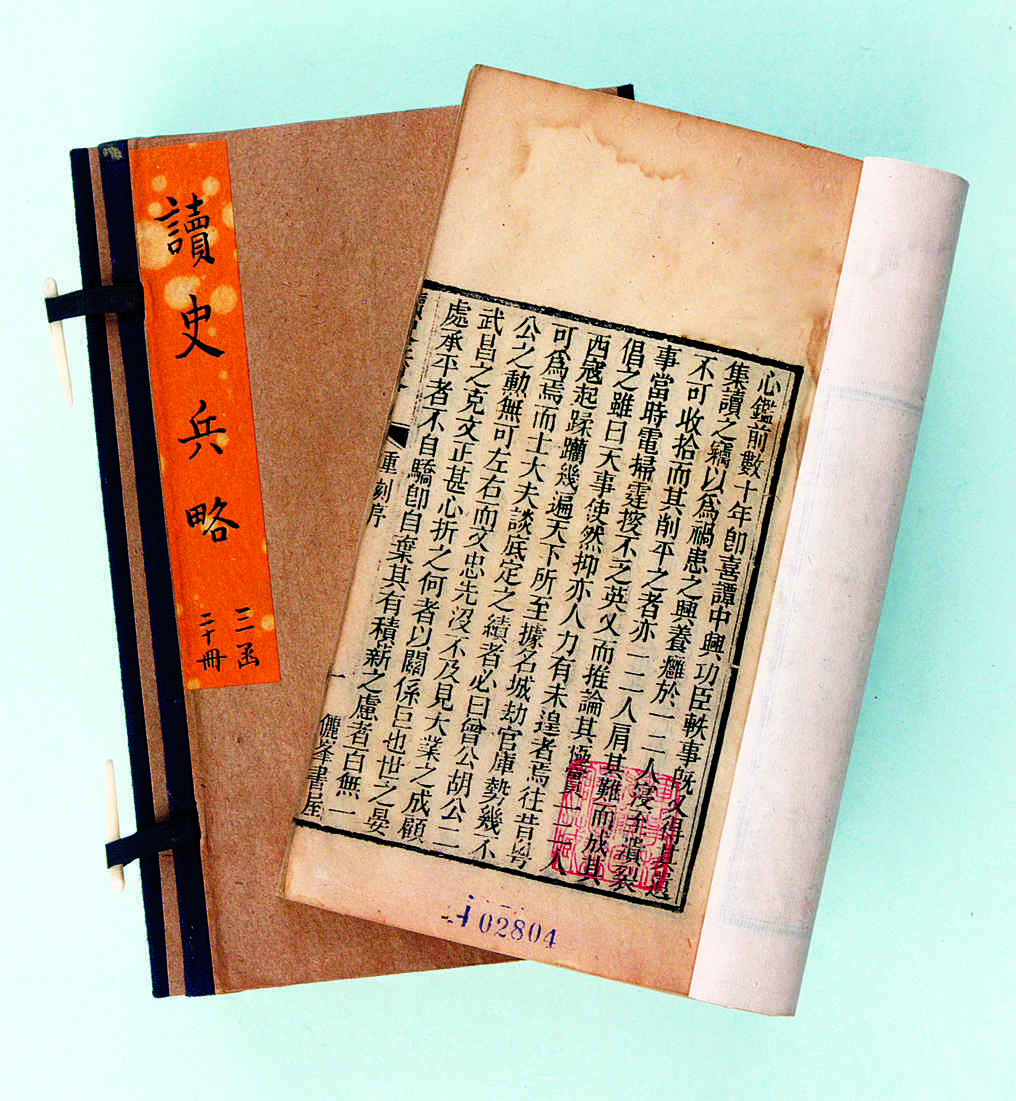 讀史兵略
三函
二十冊
心鑑前數十年卽喜譚中興功臣軼事旣又得其遺
集讀之竊以爲禍患之興養癰於一二人浸至潰裂
不可收拾而其削平之者亦一二人肩其難而成其
事當時電掃霆掞不之英乂而推論其實一二人
倡之雖曰天事使然抑亦人力有未遑者焉往昔粤
西寇起蹂躪幾遍天下所至據名城劫官庫勢幾不
可爲焉而士大夫談底定之績者必曰曾公胡公二
公之勳無可左右而文忠先沒不及見大業之成顧
武昌之克文正甚心折之何者以關係巨也世之晏
處承平者不自驕卽自棄其有積薪之慮者百無一
重刻序
一
儷峯書屋
02804